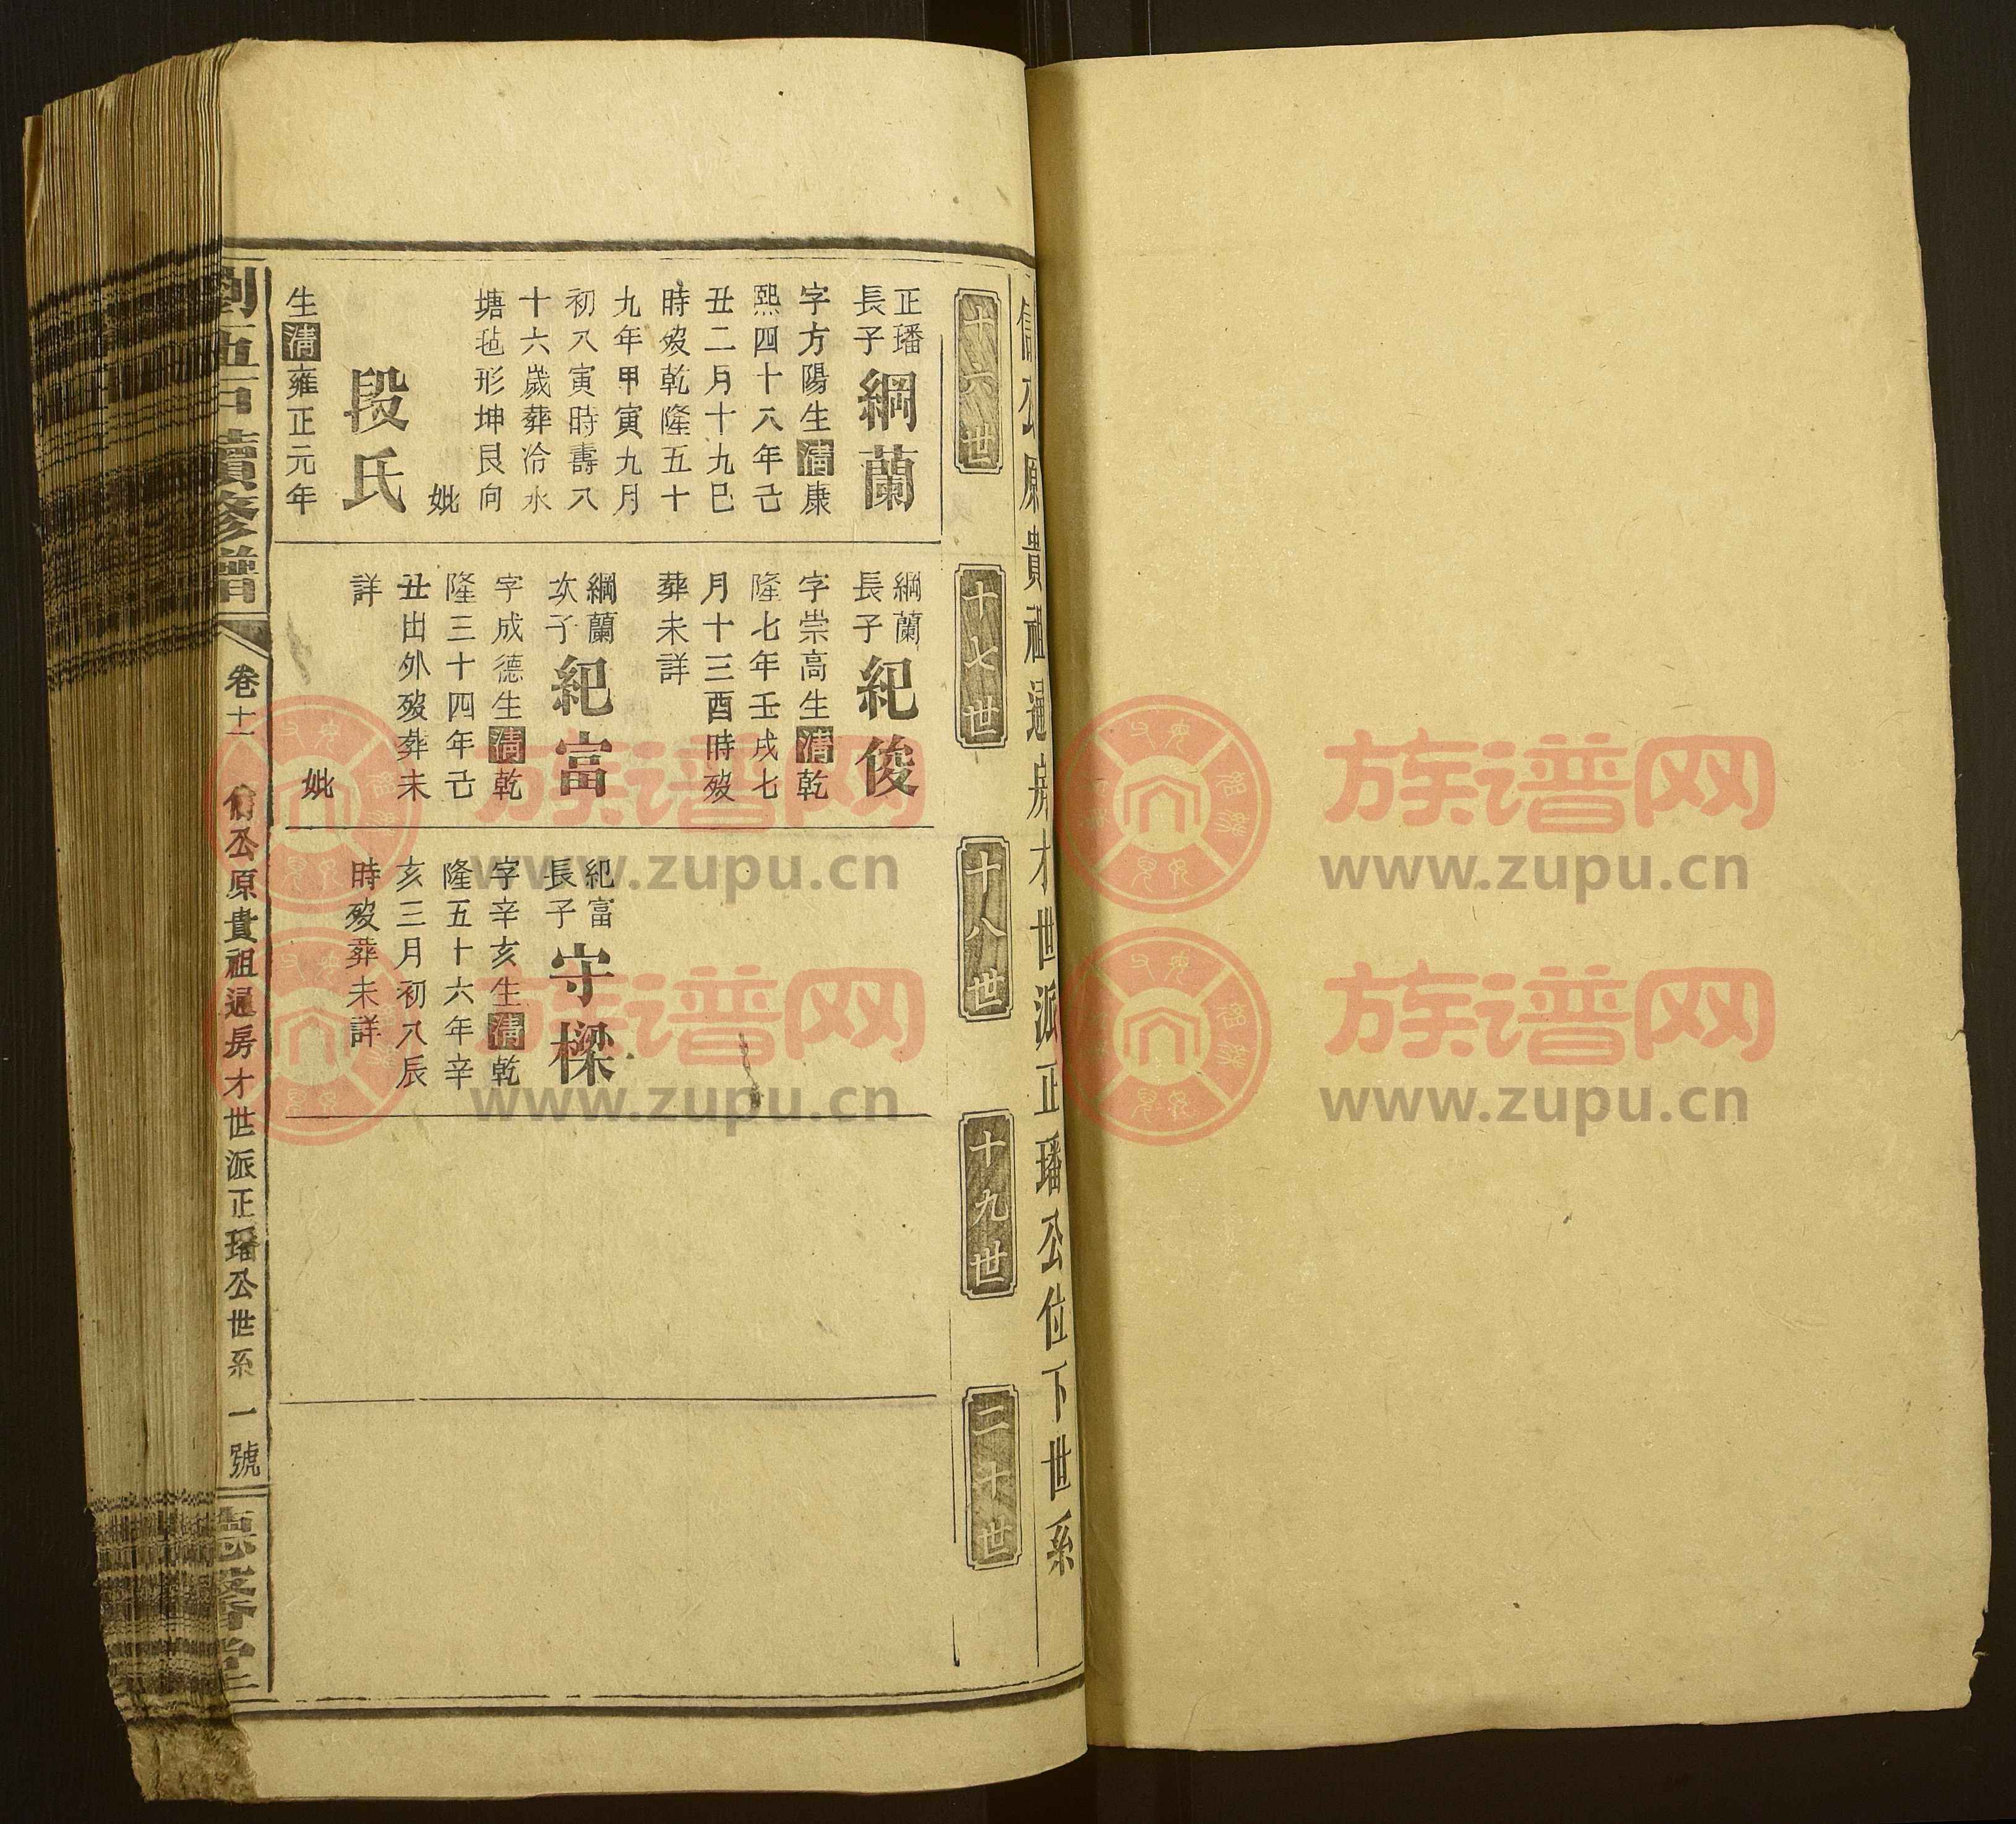 公原貴祖通房才世派正璠公位下世系
十六世
十七世
十八世
十九世
二十世
正璠
長子
綱蘭
字方陽生清康
熙四十八年己
丑二月十九巳
時歿乾隆五十
九年甲寅九月
初八寅時壽八
十六歲葬冷水
塘毡形坤艮向
妣
段氏
生清雍正元年
綱蘭
長子
紀俊
字崇高生清乾
隆七年壬戌七
月十三酉時歿
葬未詳
綱蘭
次子
紀富
字成德生清乾
隆三十四年己
丑出外歿葬未
詳
妣
紀富
長子
守樑
字辛亥生清乾
隆五十六年辛
亥三月初八辰
時歿葬未詳
劉 續修譜
卷十一
公原貴祖通房才世派正璠公世系
一號
堂
族谱网
www.zupu.cn
族谱网
www.zupu.cn
族谱网
www.zupu.cn
族谱网
www.zupu.cn